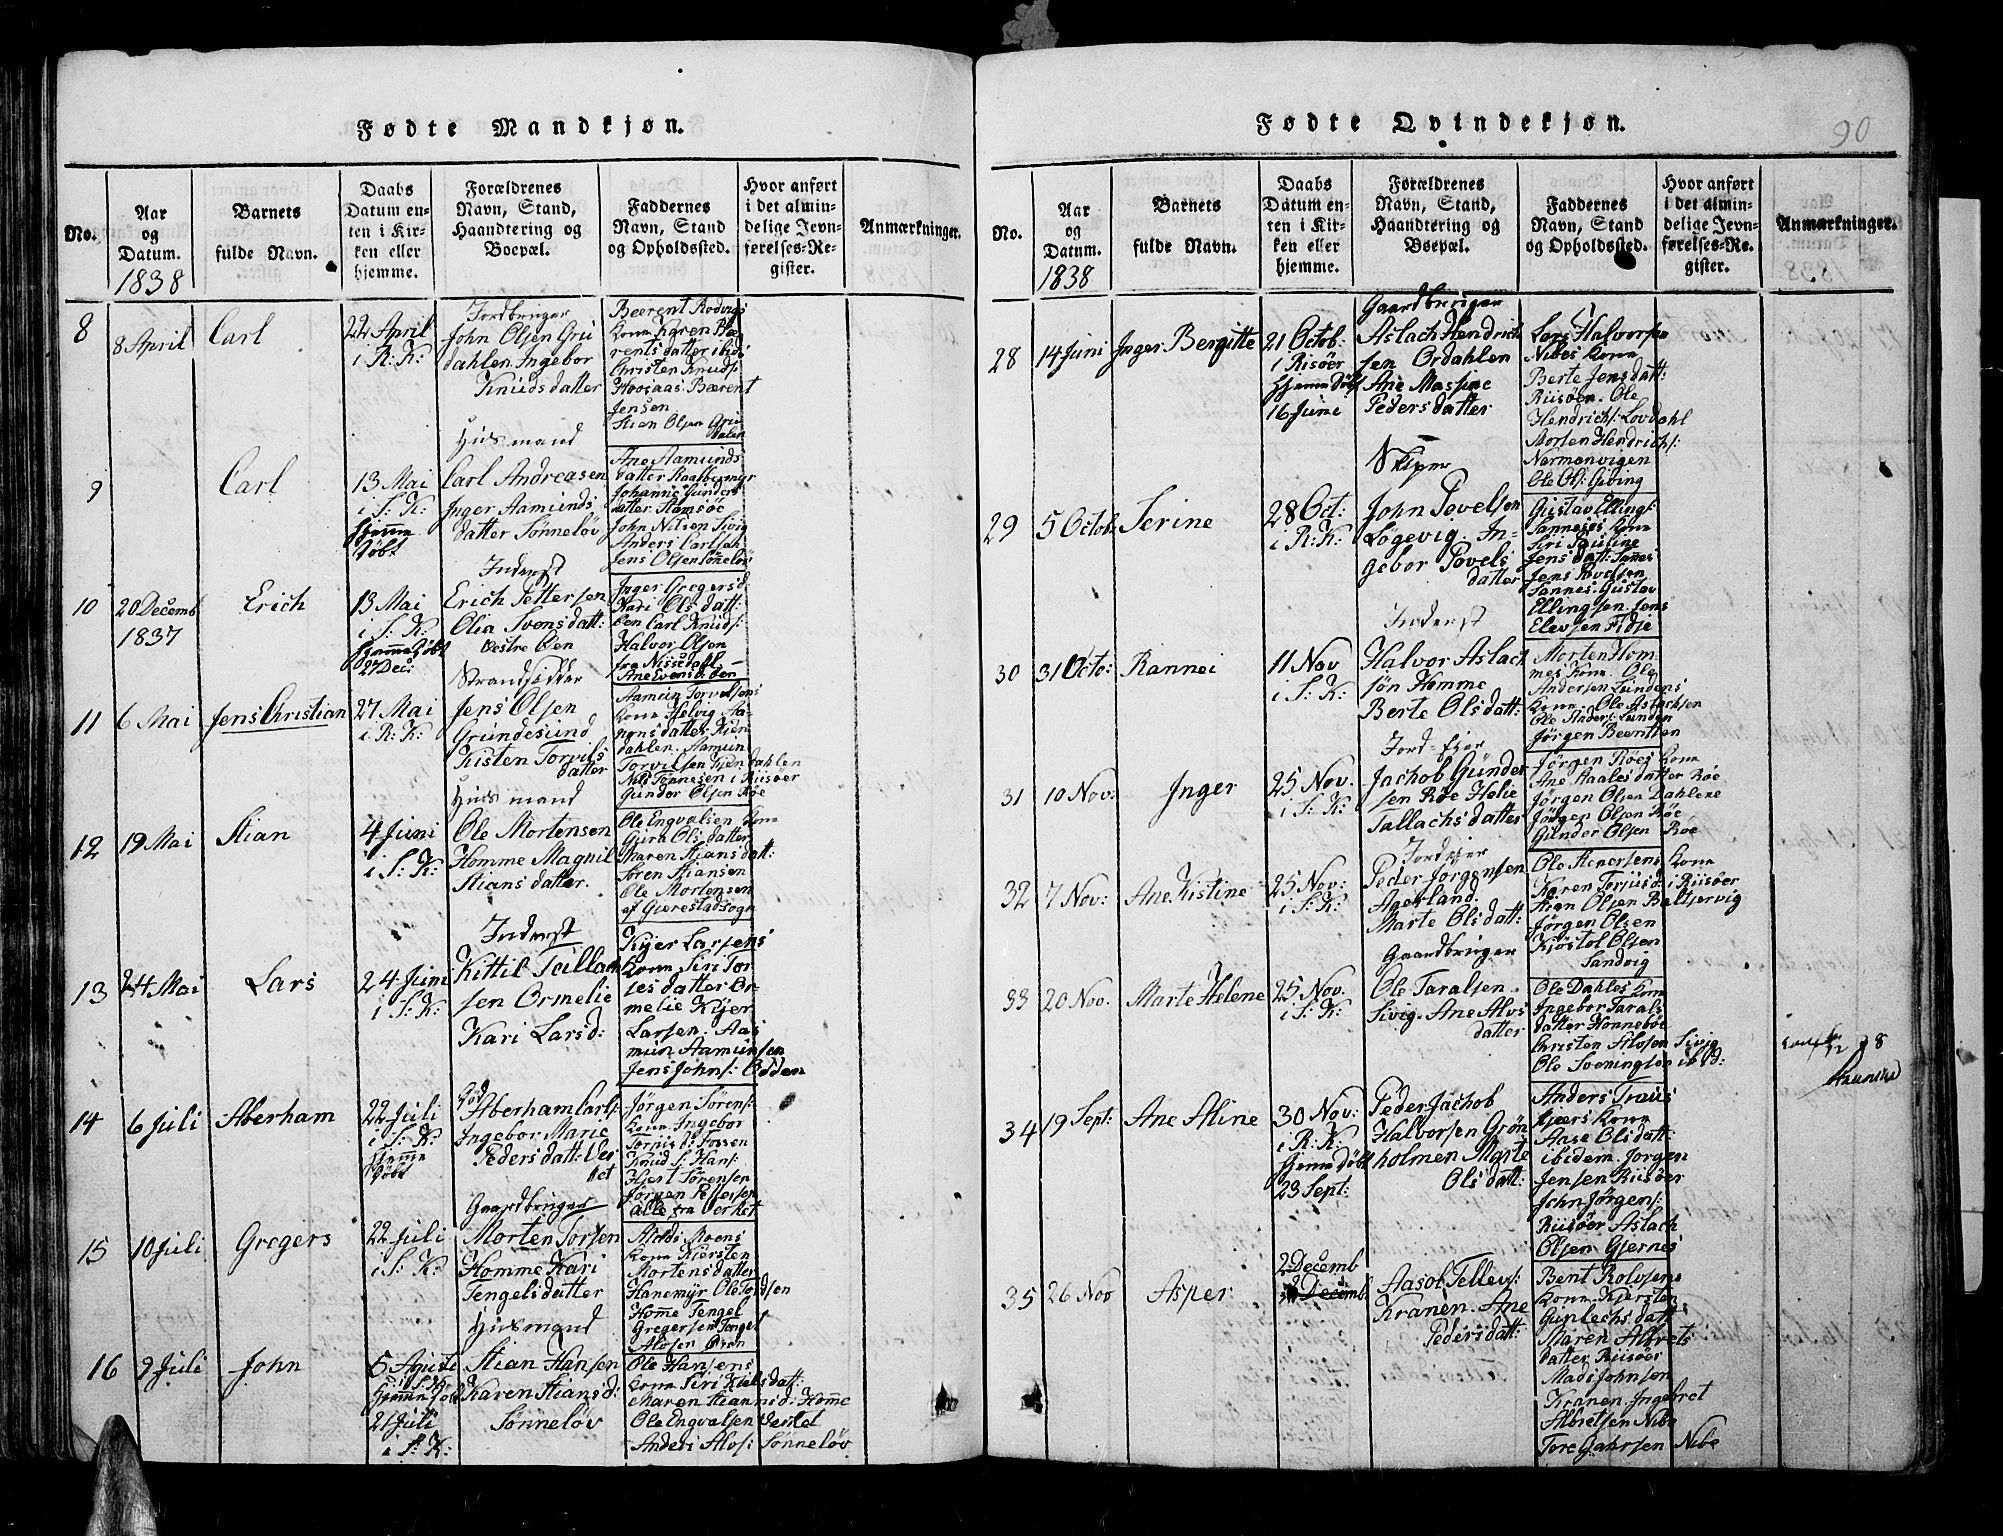 Fødte Mandkjøn.
No.
Aar
og
Datum.
1838
Barnets
fulde Navn.
Daabs
Datum en-
ten i Kir-
ken eller
hjemme.
Forældrenes
Navn, Stand,
Haandtering og
Boepæl.
Faddernes
Navn, Stand
og Opholdssted.
Hvor anført
i det almin-
delige Jevn-
førelses-Re-
gister.
Anmærkninger.
8
8 April
Carl
22 April
i R: K:
Jordbruger
John Olsen Gru
dahlen Ingebor
Knudsdatter
Kone Karen Bæ
rentsdatter ibid:
Christen Knuds:
Hoosaas: Bærent
Jensen
Stian Olsen Gru
dalen
9
Carl
13 Mai
i S: K:
hjemme
døbt
Huusmand
Carl Andreasen
Inger Aamunds
datter Sønneløv
Ane Aamunds
datter
Johanne Gunders
datter
John Nilsen Sivig
Anders Carlsen
Jens Olsen Sønneløv
10
20 Decemb
1837
Erich
13 Mai
i S: K:
hjemmedøbt
27 Dec:
Inderst
Erich Pettersen
Olia Svensdatt:
Vestre Øen
Inger Gregersd:
Kari Olsdatt:
Øen Carl Knuds:
Halvor Olsen
fra Nissedahl
11
6 Mai
Jens Christian
27 Mai
i R: K:
Strandsidder
Jens Olsen
Grundesund
Kisten Torvils
datter
Aamun Torvelsens
Kone Helvig Aa-
dahlen. Aamun
Torvilsen Kiendahlen
Nils Tønnesen i Riisøer
Gunder Olsen Røe
12
19 Mai
Stian
4 Juni
i S: K:
Huusmand
Ole Mortensen
Homme Magnil
Stiansdatter.
Ole Engvalsen Kone
Guro Olsdatter
Maren Stiansdatt:
Søren Stiansen
Ole Mortensen
af Gjerestadsogn
13
24 Mai
Lars
24 Juni
i S: K:
Inderst
Kittil Tallach
sen Ormelie
Kari Larsd:
Kijer Larsens
Kone Siri Tor
jesdatter Or-
melie Kijer
Larsen. Aas
mun Aamunsen
Jens Johns: Odden
14
6 Juli
Aberham
22 Juli
i S: K:
hjemme
døbt
Aberham Carls:
Ingebor Marie
Pedersdatt: Ver
ket
Jørgen Sørens:
Kone Ingebor
Torjusd: Fossen
Knud S: Hans:
Hjest Sørensen
Jørgen Petersen
alle fra Verket
15
10 Juli
Gregers
22 Juli
i S: K:
Gaardbruger
Morten Torsen
Homme Kari
Tengelsdatter
Kone Kiersten
Mortensdatter
Hanemyr Ole Tordsen
Homme Tengel
Gregersen Tengel
Alofsen Øren
16
9 Juli
John
5 Agust
i S: K:
hjemme døbt
21 Juli
i S: K:
Huusmand
Stian Hansen
Karen Stiansd:
Sønneløv
Ole Hansens
Kone Siri Kielsdatt:
Maren Stiannsd: Homme
Ole Engvalsen
Anders Alofs: Sønneløv
Fødte Qvindekjøn.
90
No.
Aar
og
Datum.
1838
Barnets
fulde Navn.
Daabs
Datum en-
ten i Kir-
ken eller
hjemme.
Forældrenes
Navn, Stand,
Haandtering og
Boepæl.
Faddernes
Navn, Stand
og Opholdssted.
Hvor anført
i det almin-
delige Jevn-
førelses-Re-
gister.
Anmærkninger.
28
14 Juni
Inger Bergitte
21 Octob:
i Risøer
hjemmedøbt
16 June
Gaardbruger
Aslach Hendrich
sen Ordahlen
Ane Massine
Pedersdatter
Lars Halvorsen
Nibes Kone
Berte Jensdatt:
Riisøer. Ole
Hendrichs: Lovdahl
Morten Hendrichs:
Normanvigen
Ole Ols: Giving
29
5 Octob:
Serine
28 Oct:
i R: K:
Skiper
John Povelsen
Løgevig. In-
gebor Povels
datter
Gustav Ellings:
Sannæses Kone
Siri Pauline
Jensdatt: Sannes
Jens Povelsen
Sannes: Gustav
Ellingsen Jens
Elevsen Fidje
30
31 Octo:
Rannei
11 Nov
i S: K:
Inderst
Halvor Aslach
søn Homme
Berte Olsdatt:
Morten Hom
mes Kone. Ole
Andersen Lundens
Kone. Ole Aslachsen
Ole Anders: Lunden
Jørgen Beeritten
31
10 Nov:
Inger
25 Nov.
i S: K:
Jord-Ejer
Jachob Gunder
sen Røe Helie
Tallachsdatter
Jørgen Røes Kone
Ane Aalesdatter Røe
Jørgen Olsen Dahlene
Jørgen Olsen Røe
Gunder Olsen Røe
32
7 Nov:
Ane Kistine
25 Nov:
i S: K:
Jordejer
Peder Jørgensen
Agerland.
Marte Olsdatt:
Karen Torjusd: i Riisøer
Stian Olsen
Jørgen Olsen
Kjøstol Olsen
Sandvig
33
20 Nov.
Marte Helene
25 Nov.
i S: K:
Gaardbruger
Ole Taralsen.
Sivig. Ane Alvs
datter
Ole Dahles Kone
Ingebor Tarals
datter Hønnebøe
Christen Alofsen Sivig
Ole Sveningsen ibid:
34
19 Sept:
Ane Aline
30 Nov:
i R: K:
hjemmedøbt
23 Sept:
Peder Jachob
Halvorsen Grøn
holmen Marte
Olsdatt:
Anders Traus
kjers Kone
Aase Olsdatt:
ibidem. Jørgen
Jensen Riisøer
John Jørgens:
Riisøer Aslach
Olsen Gjernes
35
26 Nov
Asper
2 Decemb
Decemb
Aasol Tellevs:
Kranen. Ane
Pedersdatt:
Bent Rolvsens
Kone. Kjersten
Gunlechsdatt
Maren Albrets
datter Riisøer
Mads Johnsen
Kranen Ingebret
Albretsen Nibe
Tore Gahrsen Nibe